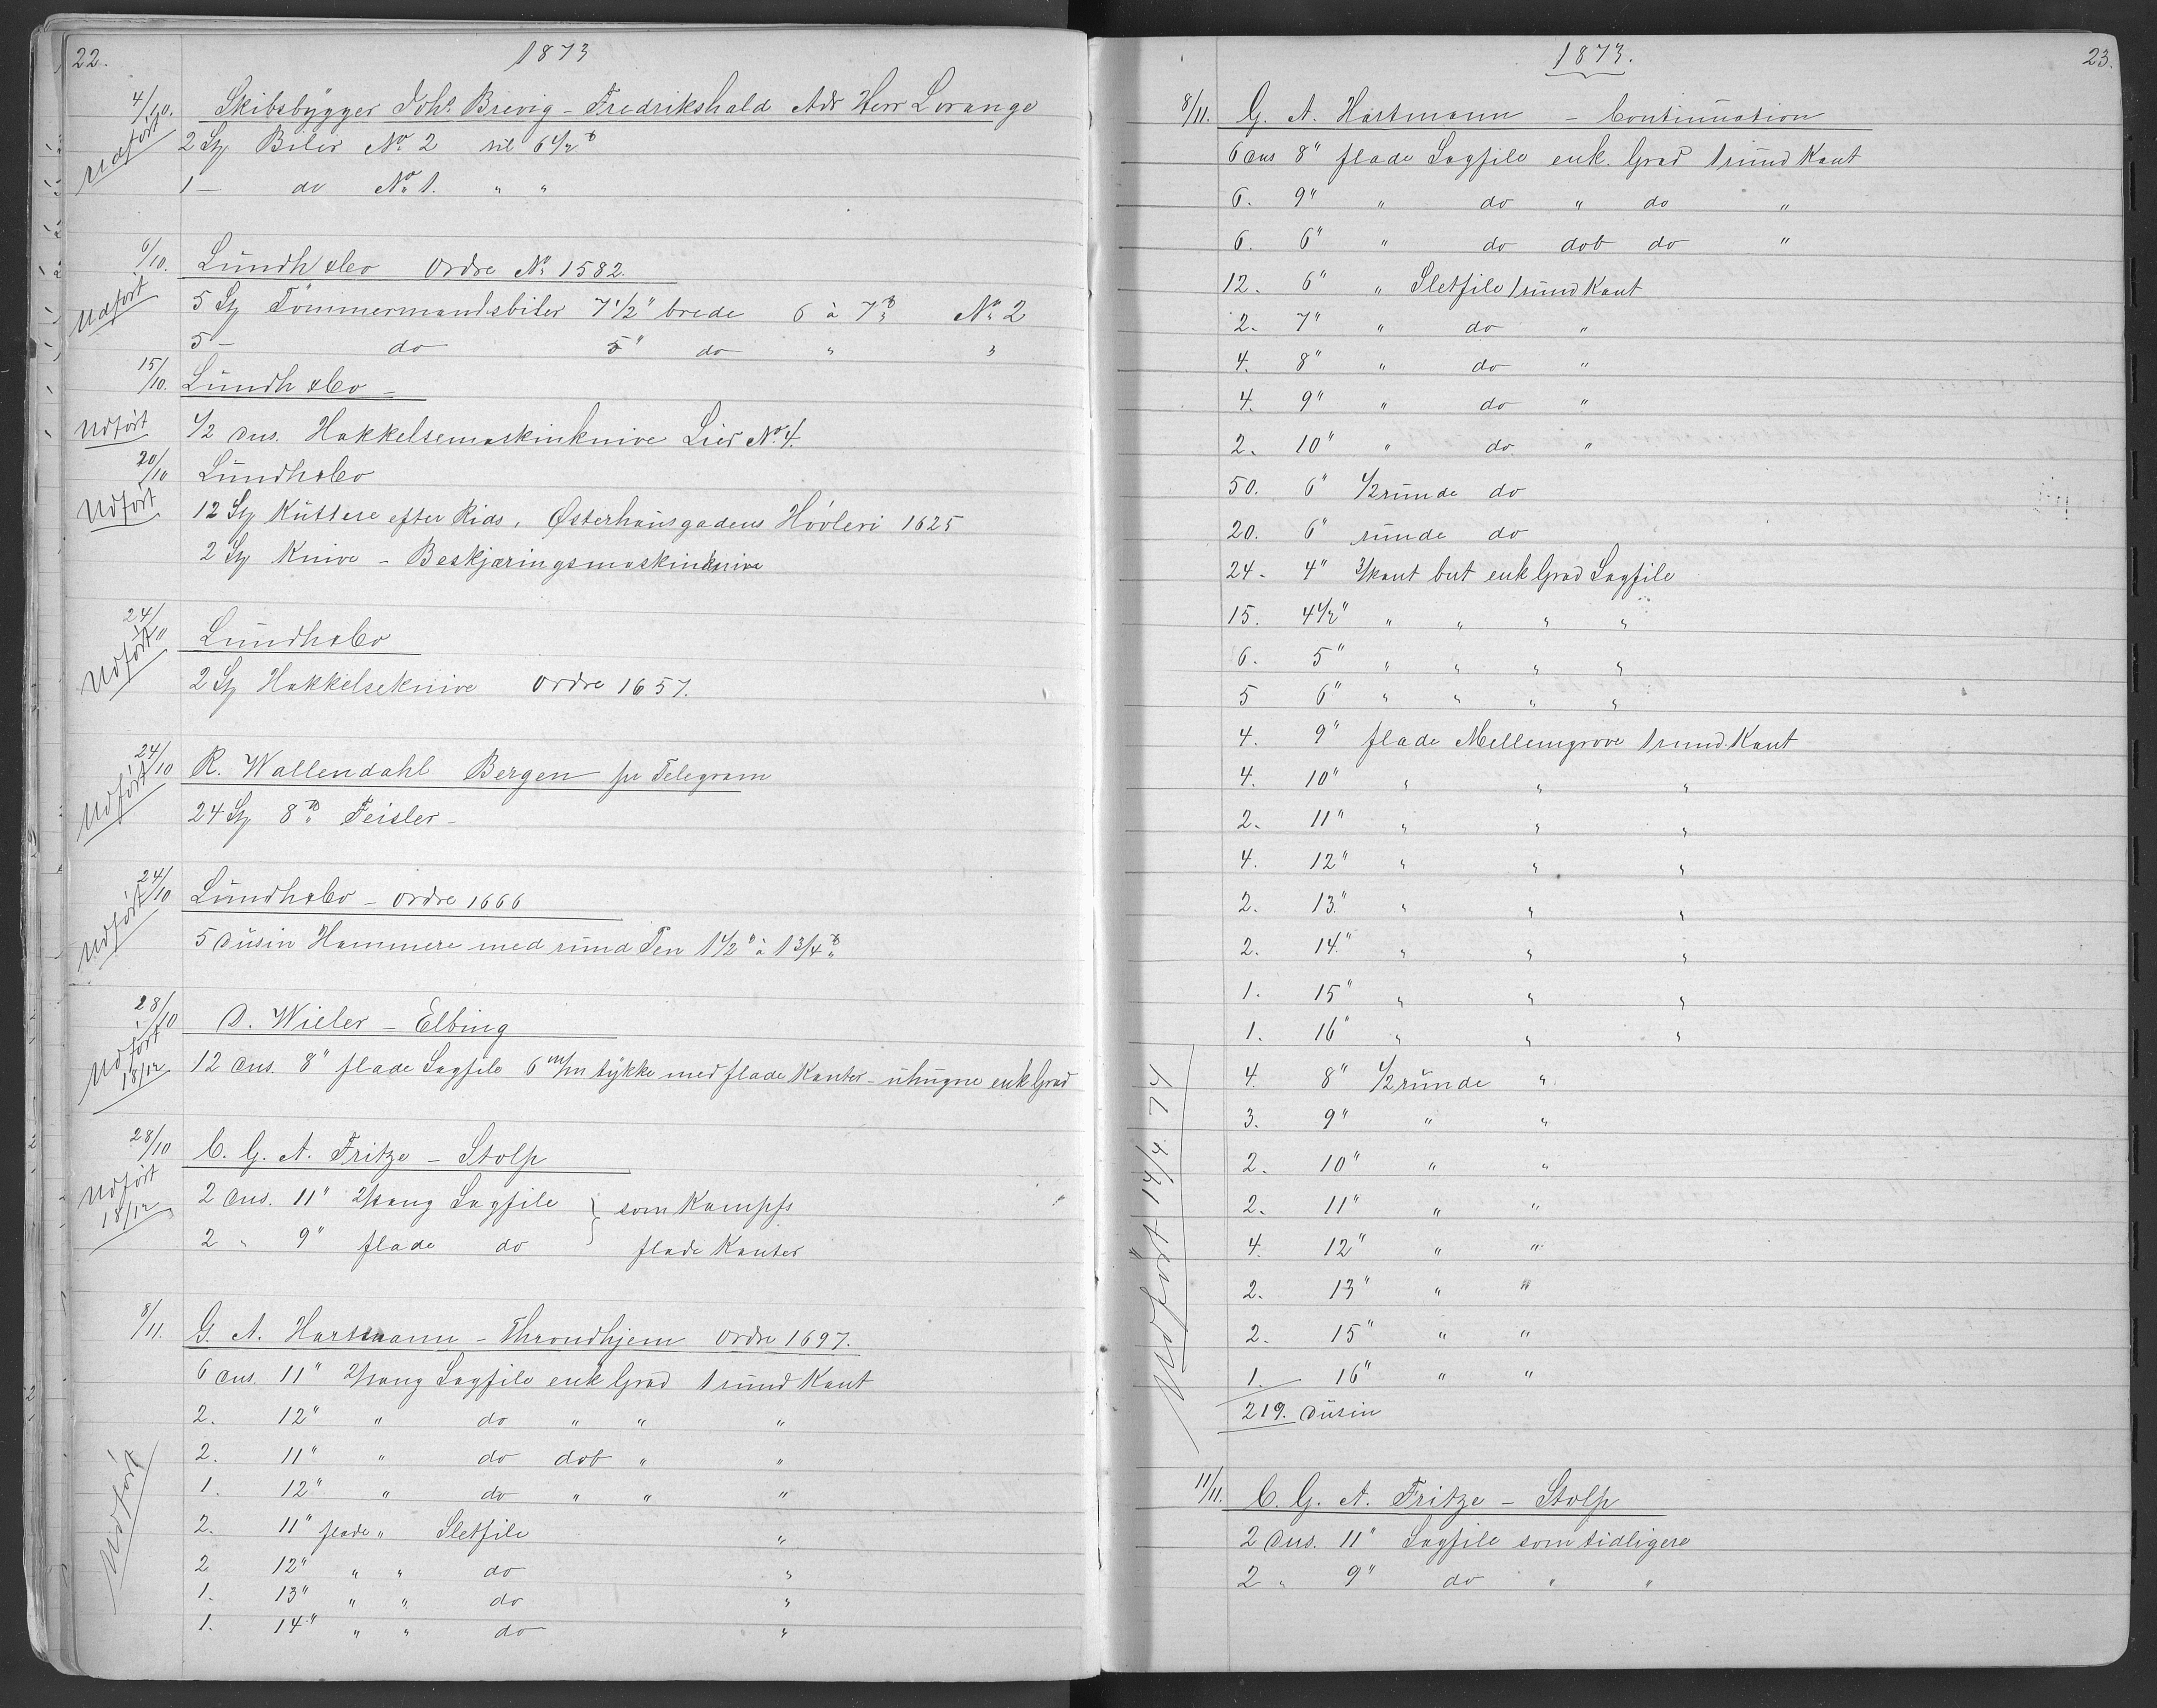 22.
1873
4/10. Skibsbygger Johs. Brevig - Fredrikshald Adr Herr Lorange
Udført
2 Stz Biler No 2 til 6 1/2 ℔
1 — do No 1. " "
6/10. Lundh & Co Ordre No 1582.
Udført
5 Stz Tømmermandsbiler 7 1/2" brede 6 à 7 ℔ No 2
5 — do 5" do " "
15/10. Lundh & Co —
Udført
1/2 Dus. Hakkelsemaskinknive Lier No 4.
20/10 Lundh & Co
Udført
12 Stz Kuttere efter Rids, Østerhausgadens Høvleri 1625
2 Stz Knive - Beskjæringsmaskinknive
24/10 Lundh & Co
Udført
2 Stz Hakkelseknive Ordre 1657.
24/10 R. Wallendahl Bergen pr Telegram
Udført
24 Stz 8 ℔ Feisler -
24/10 Lundh & Co - Ordre 1666
Udført
5 Dusin Hammere med rund Pen 1 1/2 " à 1 3/4 ℔
28/10 D. Wieler - Elbing
Udført 18/12
12 Dus. 8" flade Sagfile 6 m/m tykke med flade Kanter - uhugne enk Grad
28/10 C. G. A. Fritze - Stolp
Udført 18/12
2 Dus. 11" 2/kang Sagfile } som Kampfs
2 " 9" flade do flade Kanter
8/11. G. A. Hartmann - Throndhjem Ordre 1697.
6 Dus. 11" 2/kang Sagfile enk Grad 1 rund Kant
2. 12" " do " " "
2. 11" " do dob " "
1. 12" " do " " "
2. 11" flade " Sletfile "
2 12" " " do "
1. 13" " " do "
1. 14" " " do "
Udført
1873.
23.
8/11. G. A. Hartmann - Continuation
6 Dus 8" flade Sagfile enk. Grad 1 rund Kant
6. 9" " do " do "
6. 6" " do dob do "
12. 6" " Sletfile 1 rund Kant
2. 7" " do "
4. 8" " do "
4. 9" " do "
2. 10" " do "
50. 6" 1/2 runde do
20. 6" runde do
24 - 4" 3/kant but enk Grad Sagfile
15. 4 1/2" " " " "
6. 5" " " " "
5 6" " " " "
4. 9" flade Mellemgrove 1 rund Kant
4. 10" " " "
2. 11" " " "
4. 12" " " "
2. 13." " " "
2. 14." " " "
1. 15" " " "
1. 16" " " "
4. 8" 1/2 runde "
3. 9" " "
2. 10" " "
2. 11" " "
4. 12" " "
2. 13" " "
2. 15" " "
1. 16" " "
219. Dusin
Udført 14/4. 74
11/11. C. G. A. Fritze - Stolp
2 Dus. 11" Sagfile som tidligere
2 " 9" do " "